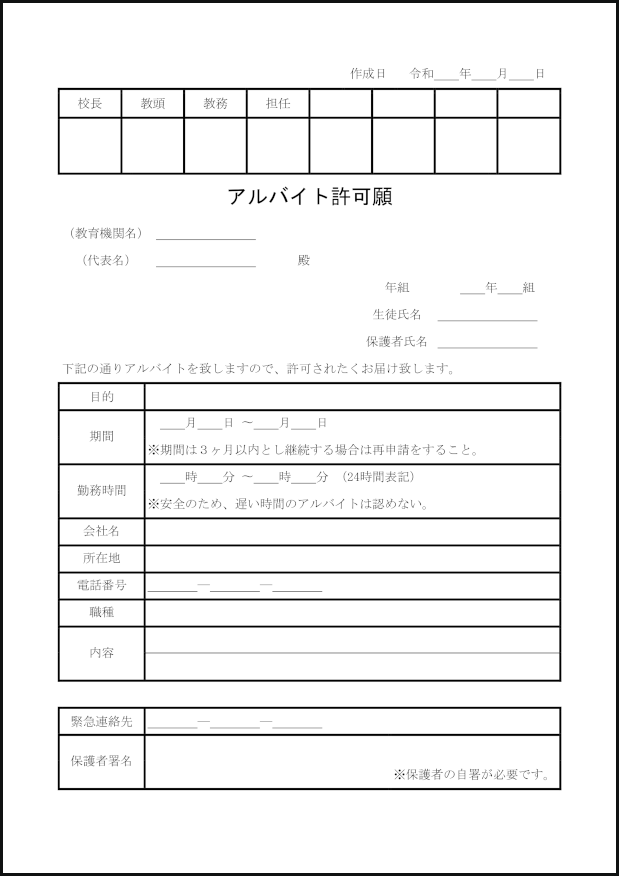 作成日　令和____年____月____日
校長 教頭 教務 担任
アルバイト許可願
（教育機関名）________________
（代表名）________________ 殿
年組 ____年____組
生徒氏名 ________________
保護者氏名 ________________
下記の通りアルバイトを致しますので、許可されたくお届け致します。
目的
期間 ____月____日 ～____月____日
※期間は３ヶ月以内とし継続する場合は再申請をすること。
勤務時間 ____時____分 ～____時____分 （24時間表記）
※安全のため、遅い時間のアルバイトは認めない。
会社名
所在地
電話番号 ________―________―________
職種
内容
緊急連絡先 ________―________―________
保護者署名
※保護者の自署が必要です。